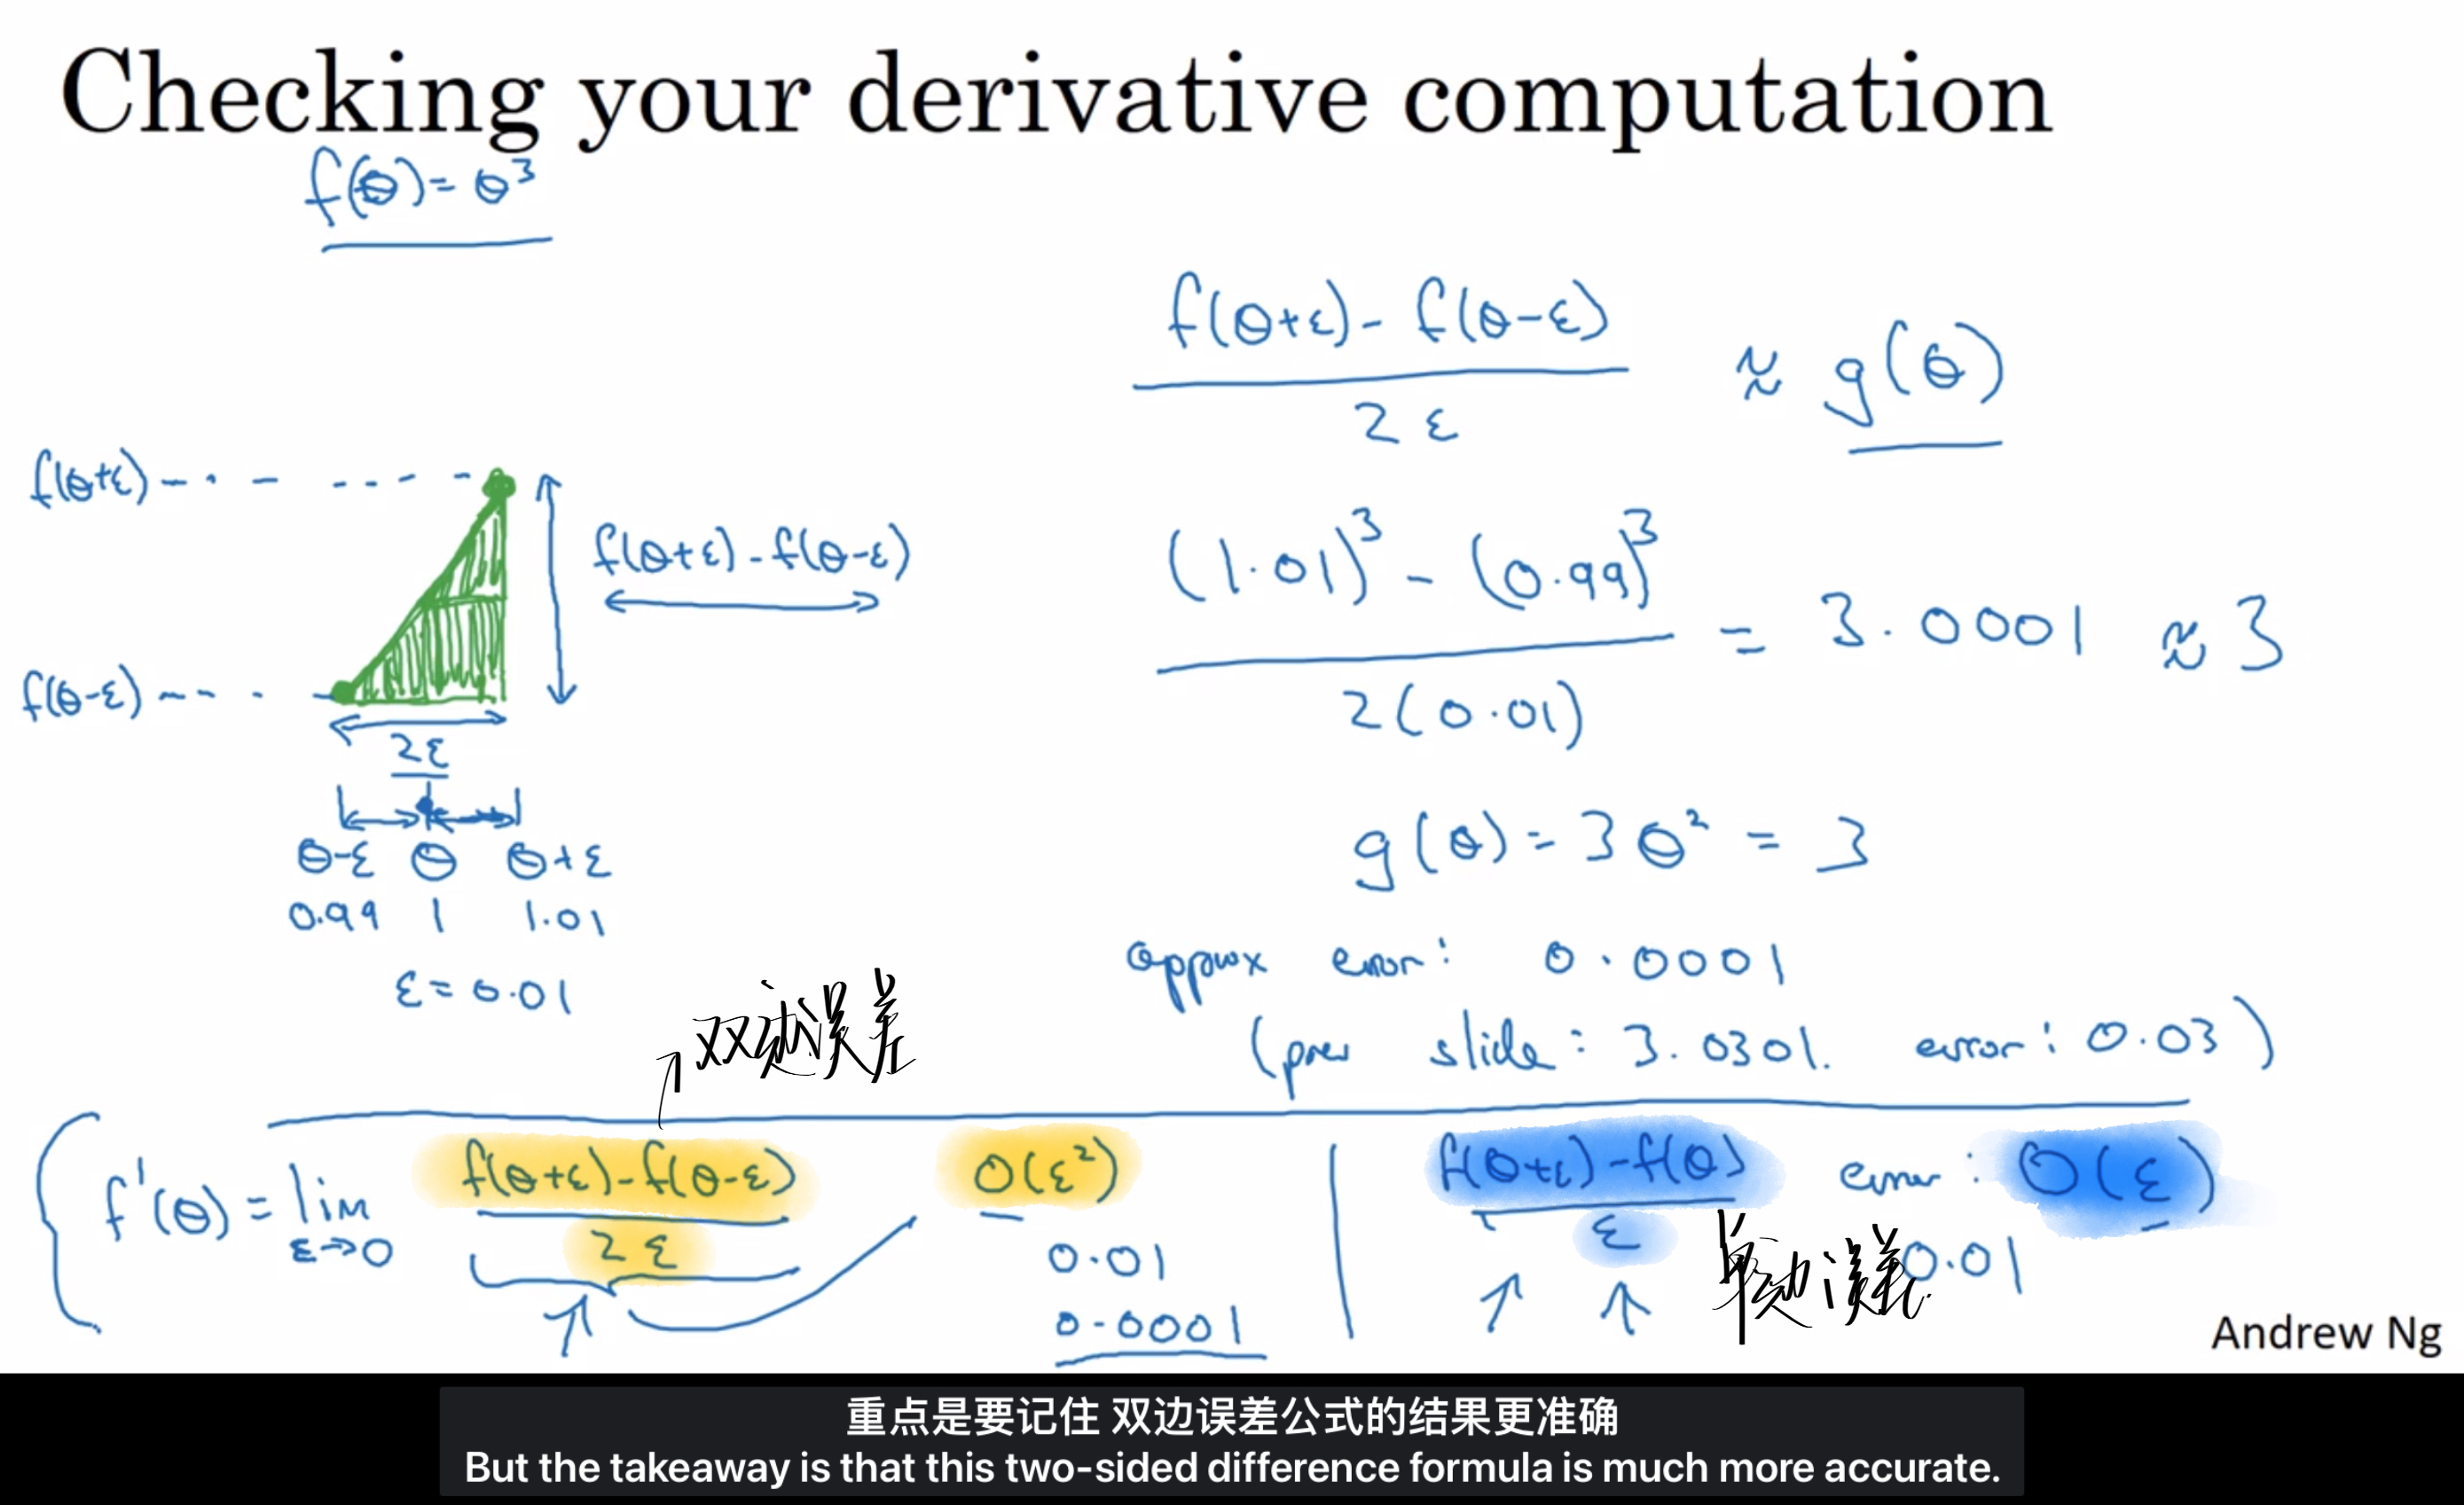 Checking your derivative computation
f(θ) = θ³
f(θ+ε) - f(θ-ε)
2ε
≈ g(θ)
f(θ+ε)
f(θ+ε) - f(θ-ε)
(1.01)³ - (0.99)³
2(0.01)
= 3.0001 ≈ 3
f(θ-ε)
2ε
θ-ε θ θ+ε
0.99 1 1.01
ε = 0.01
g(θ) = 3θ² = 3
approx error: 0.0001
(prev slide: 3.0301. error: 0.03)
双边误差
f'(θ) = lim ε→0
f(θ+ε) - f(θ-ε)
2ε
O(ε²)
0.01
0.0001
f(θ+ε) - f(θ)
ε
error: O(ε)
单边误差
0.01
Andrew Ng
重点是要记住 双边误差公式的结果更准确
But the takeaway is that this two-sided difference formula is much more accurate.